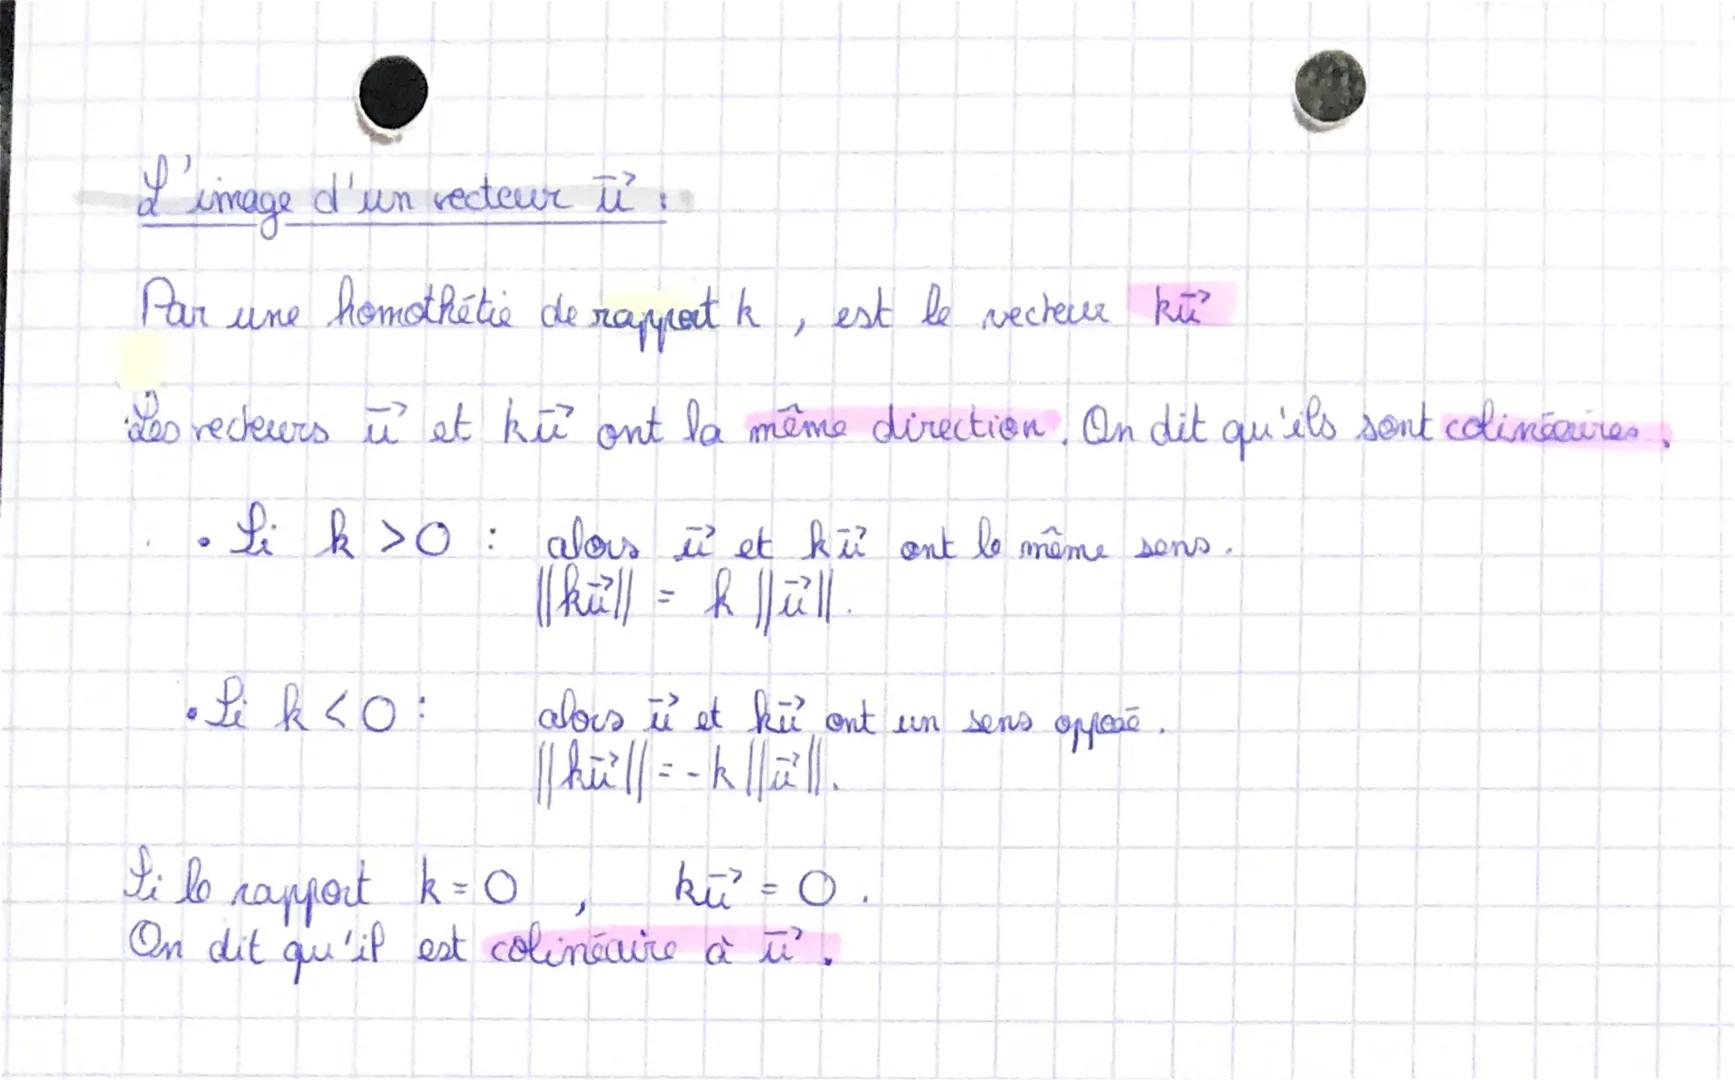 L'image d'un vecteur u⃗ :
Par une homothétie de rapport k , est le vecteur ku⃗
Les vecteurs u⃗ et ku⃗ ont la même direction. On dit qu'ils sont colinéaires.
• Si k > 0 : alors u⃗ et ku⃗ ont le même sens.
||ku⃗|| = k ||u⃗||.
• Si k < 0 : alors u⃗ et ku⃗ ont un sens opposé.
||ku⃗|| = - k ||u⃗||.
Si le rapport k = 0 , ku⃗ = 0.
On dit qu'il est colinéaire à u⃗.